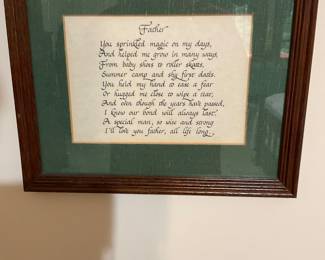 Father
You sprinkled magic on my days,
And helped me grow in many ways,
From baby shoes to roller skates,
Summer camp and shy first dates.
You held my hand to ease a fear
Or hugged me close to wipe a tear,
And even though the years have passed,
I know our bond will always last.
A special man, so wise and strong
I'll love you father, all life long.